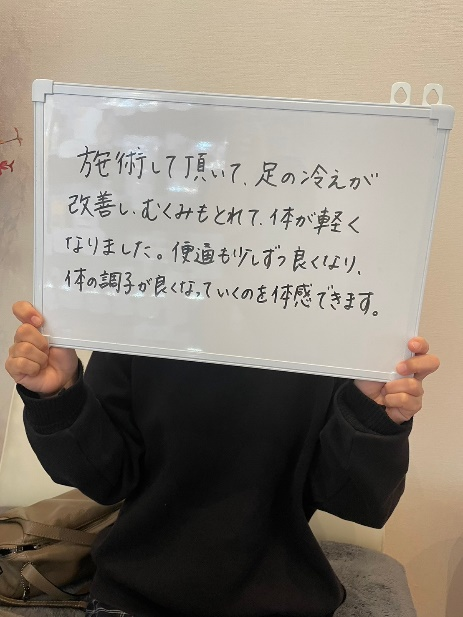 施術して頂いて、足の冷えが
改善し、むくみもとれて、体が軽く
なりました。便通も少しずつ良くなり、
体の調子が良くなっていくのを体感できます。